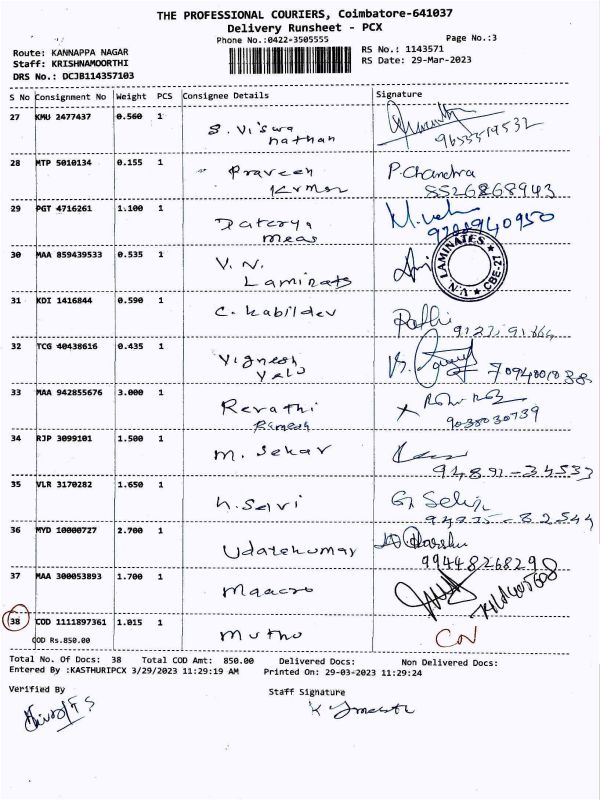 THE PROFESSIONAL COURIERS, Coimbatore-641037
Delivery Runsheet - PCX
Phone No.:0422-3505555
Page No.:3
Route: KANNAPPA NAGAR
RS No.: 1143571
Staff: KRISHNAMOORTHI
RS Date: 29-Mar-2023
DRS No.: DCJB114357103
S No Consignment No Weight PCS Consignee Details Signature
27 KMU 2477437 0.560 1 S. Viswa
nathan
28 MTP 5010134 0.155 1 Praveen P. Chandra
Kumar 8526868943
29 PGT 4716261 1.100 1
30 MAA 859439533 0.535 1 V. N.
Laminats
V.N. LAMINATES CBE-27
31 KDI 1416844 0.590 1 C. Kabildev
32 TCG 40438616 0.435 1 Vignesh
Velu
33 MAA 942855676 3.000 1 Revathi
Ramesh 9030030739
34 RJP 3099101 1.500 1 M. Sekar
35 VLR 3170282 1.650 1
36 MYD 10000727 2.700 1 Udatekumar
99448268298
37 MAA 300053893 1.700 1 Maacro
38 COD 1111897361 1.015 1 Muthu CN
COD Rs.850.00
Total No. Of Docs: 38 Total COD Amt: 850.00 Delivered Docs: Non Delivered Docs:
Entered By :KASTHURIPCX 3/29/2023 11:29:19 AM Printed On: 29-03-2023 11:29:24
Verified By Staff Signature